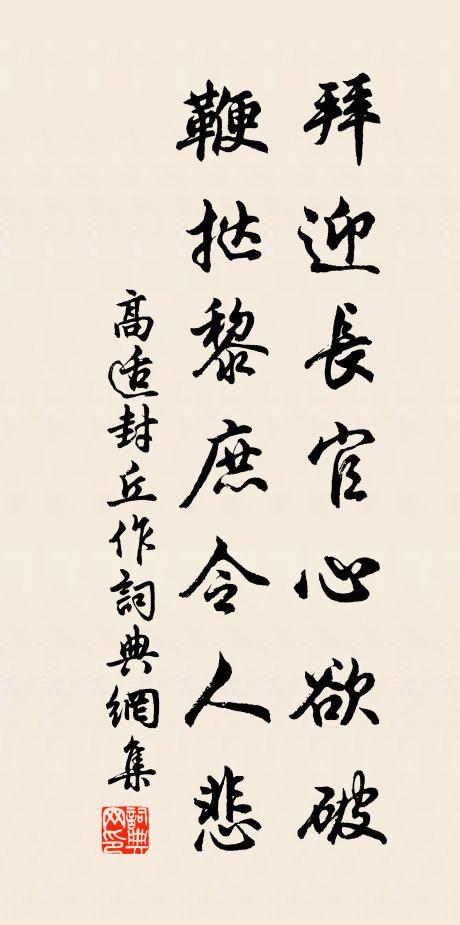 拜迎長官心欲破
鞭撻黎庶令人悲
高適封丘作詞典網集
詞典網印